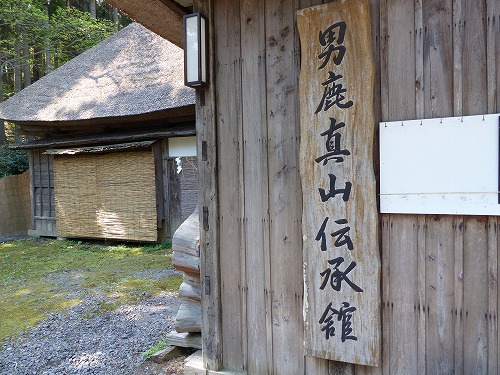 男鹿真山伝承館